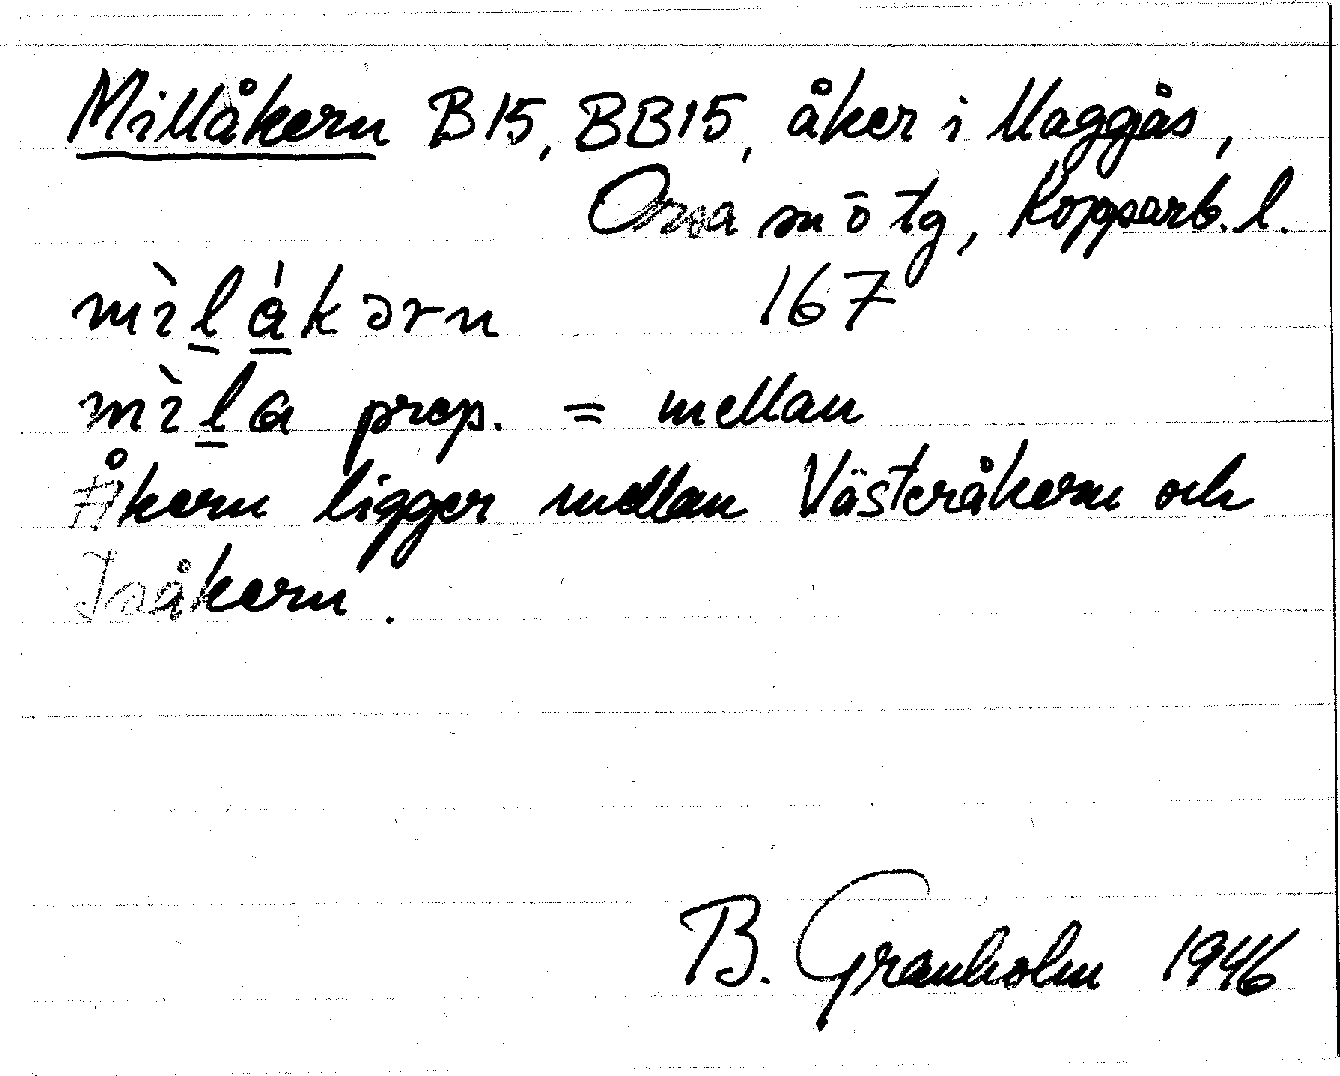 Millåkern B15, BB15, åker i Maggås,
Orsa sn ö tg, Kopparb. l.
mìlákərn 167
mìla prep. = mellan
Åkern ligger mellan Västeråkern och
Isåkern.
B. Granholm 1946